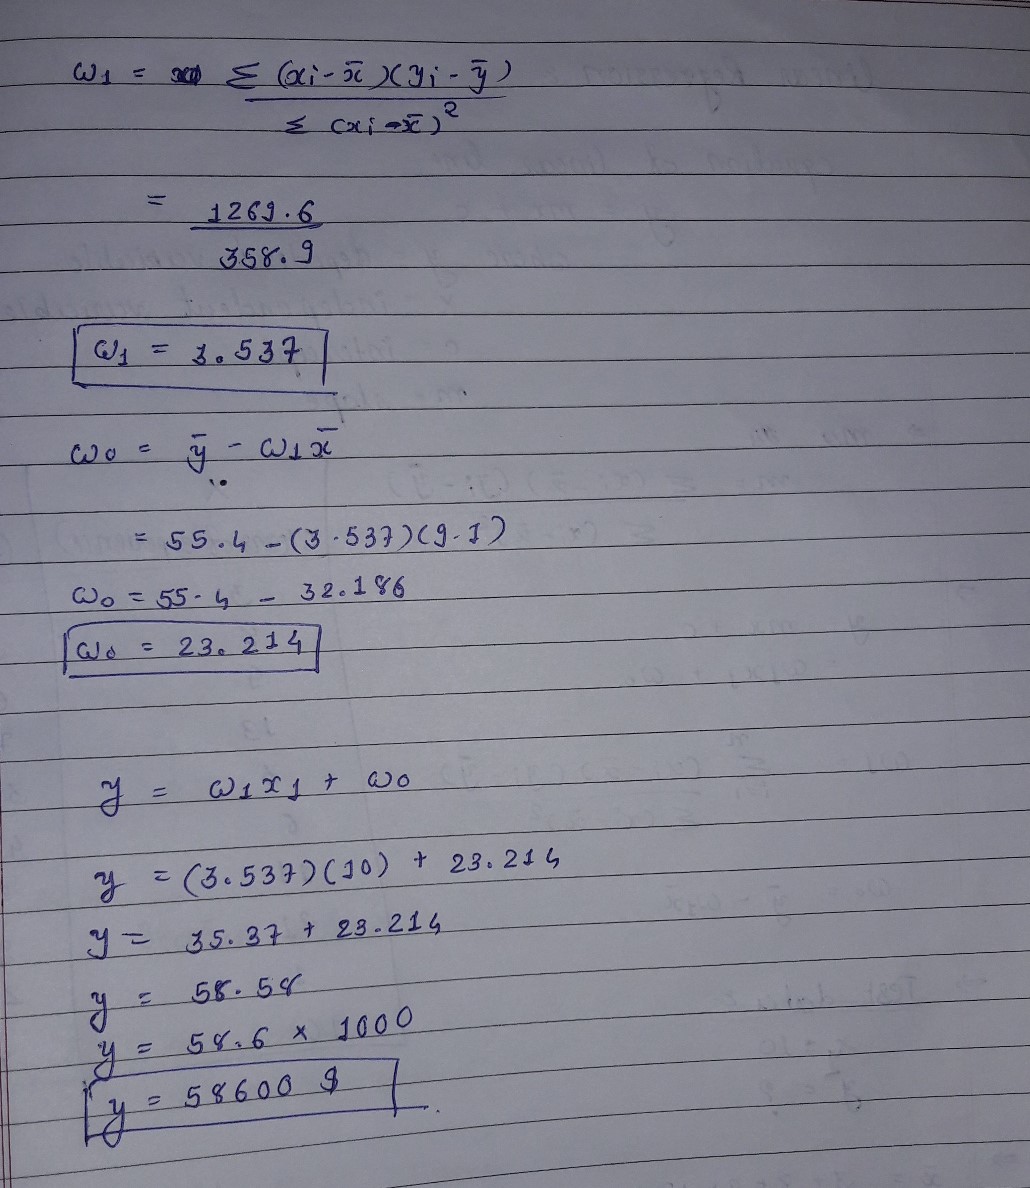 ω1 = Σ (xi - x̄)(yi - ȳ)
Σ (xi - x̄)²
= 1269.6
358.9
ω1 = 3.537
ω0 = ȳ - ω1x̄
= 55.4 - (3.537)(9.1)
ω0 = 55.4 - 32.186
ω0 = 23.214
y = ω1x1 + ω0
y = (3.537)(10) + 23.214
y = 35.37 + 23.214
y = 58.58
y = 58.6 × 1000
y = 58600 $